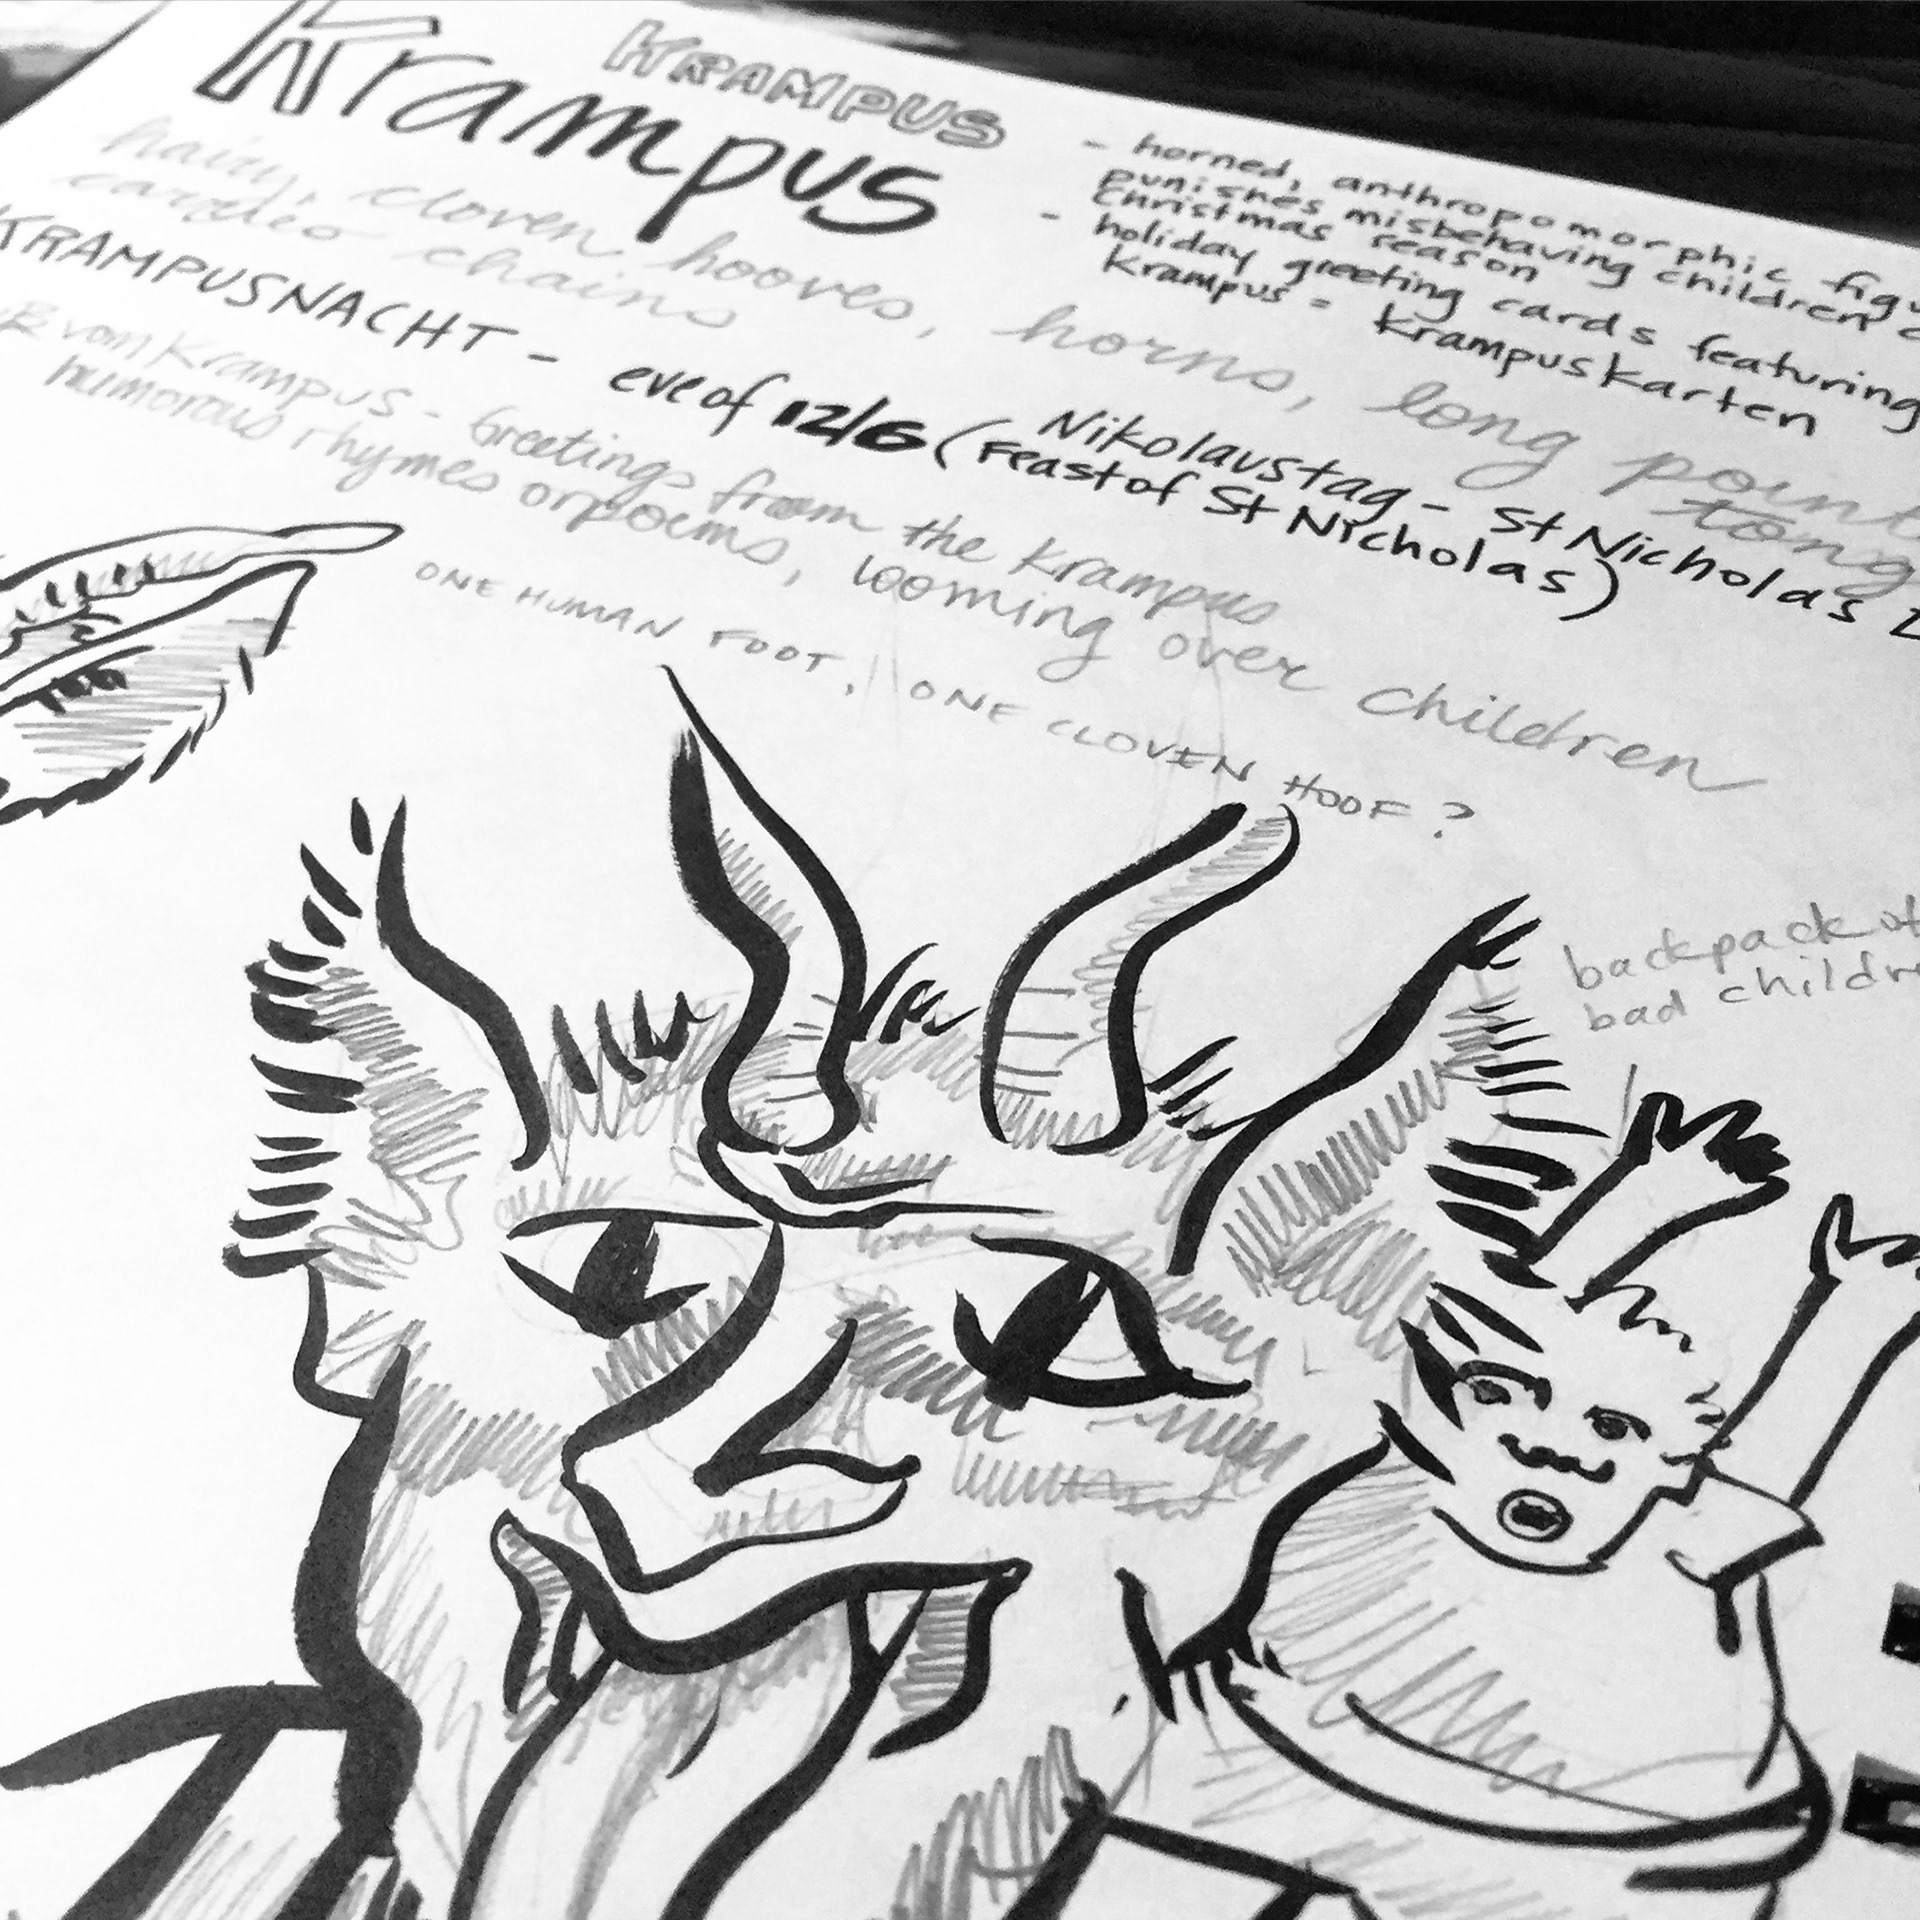 Krampus
KRAMPUS
- horned, anthropomorphic
punishes misbehaving children
Christmas season
- holiday greeting cards featuring
Krampus = Krampuskarten
hairy, cloven hooves, horns, long
chains
KRAMPUSNACHT - eve of 12/6 (Nikolaustag - St Nicholas
(Feast of St Nicholas)
vom Krampus - Greetings from the Krampus
humorous rhymes or poems, looming over children
ONE HUMAN FOOT, ONE CLOVEN HOOF?
backpack of
bad